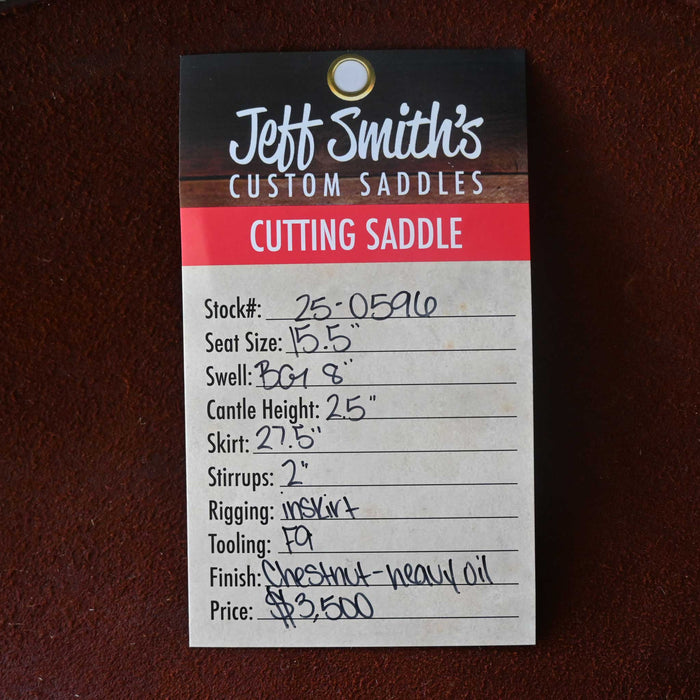 Jeff Smith's
CUSTOM SADDLES
CUTTING SADDLE
Stock#: 25-0596
Seat Size: 15.5"
Swell: BG1 8"
Cantle Height: 2.5"
Skirt: 27.5"
Stirrups: 2"
Rigging: inskirt
Tooling: F9
Finish: Chestnut-heavy oil
Price: $3,500